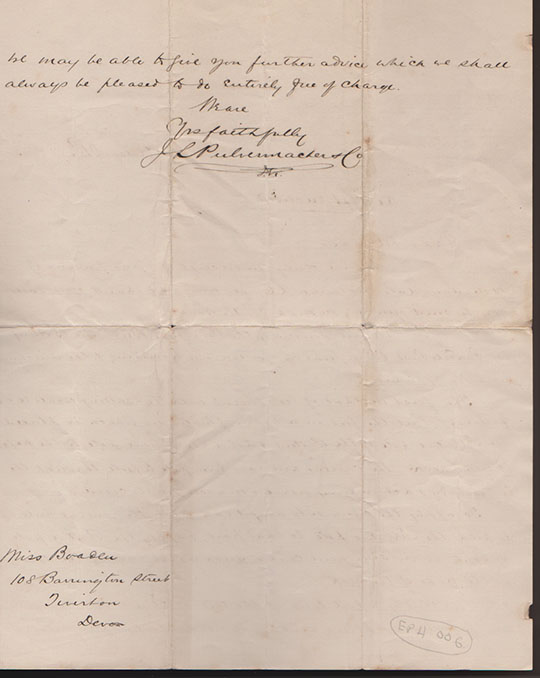 we may be able to give you further advice which we shall
always be pleased to do entirely free of charge.
We are
Yrs faithfully
J L Pulvermacher & Co
Miss Boaden
108 Barrington Street
Tiverton
Devon
EPH 006